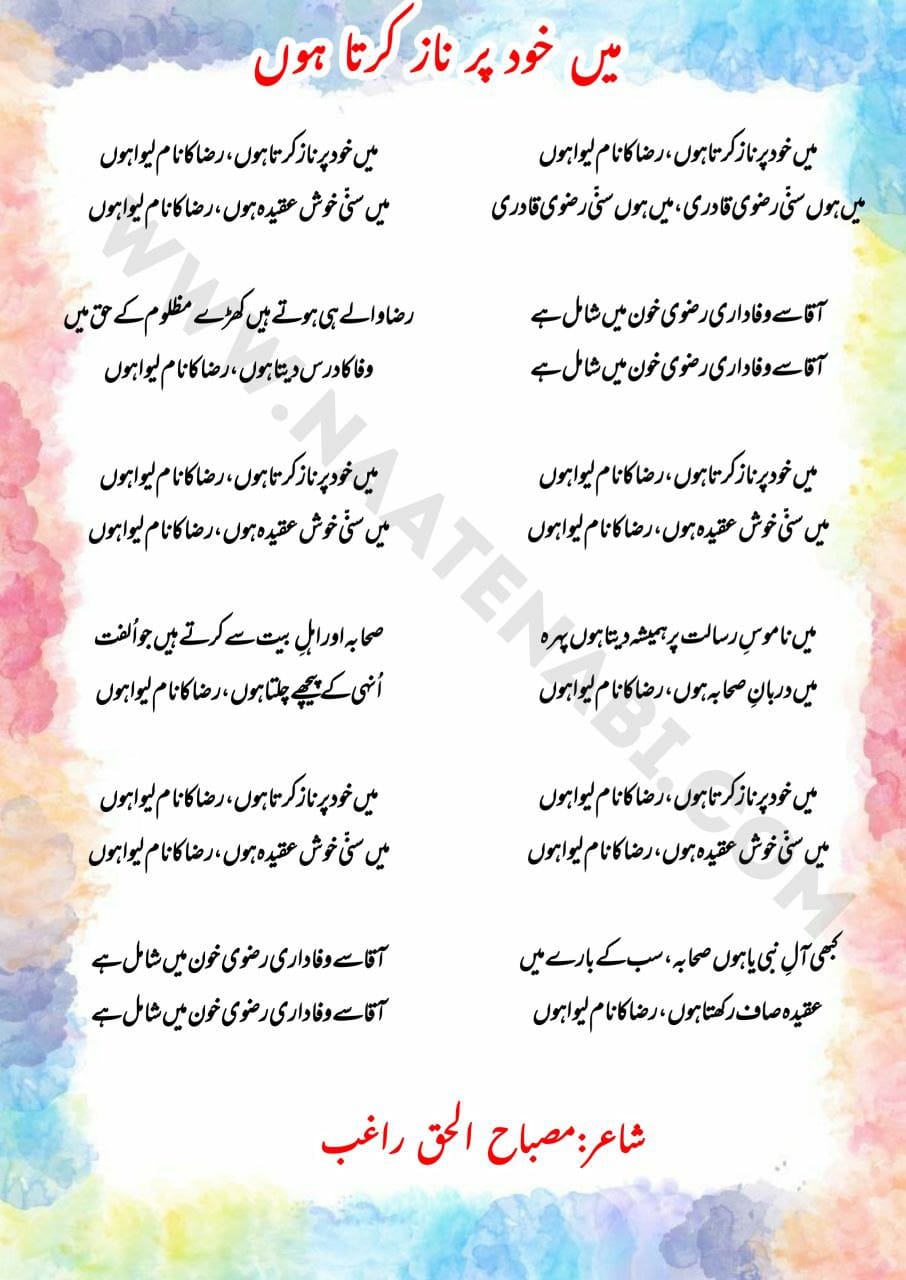 میں خود پر ناز کرتا ہوں
میں خود پر ناز کرتا ہوں، رضا کا نام لیوا ہوں
میں ہوں سنّی رضوی قادری، میں ہوں سنّی رضوی قادری
میں خود پر ناز کرتا ہوں، رضا کا نام لیوا ہوں
میں سنّی خوش عقیدہ ہوں، رضا کا نام لیوا ہوں
آقا سے وفاداری رضوی خون میں شامل ہے
آقا سے وفاداری رضوی خون میں شامل ہے
رضا والے ہی ہوتے ہیں کھڑے مظلوم کے حق میں
وفا کا درس دیتا ہوں، رضا کا نام لیوا ہوں
میں خود پر ناز کرتا ہوں، رضا کا نام لیوا ہوں
میں سنّی خوش عقیدہ ہوں، رضا کا نام لیوا ہوں
میں خود پر ناز کرتا ہوں، رضا کا نام لیوا ہوں
میں سنّی خوش عقیدہ ہوں، رضا کا نام لیوا ہوں
میں ناموسِ رسالت پر ہمیشہ دیتا ہوں پہرہ
میں دربانِ صحابہ ہوں، رضا کا نام لیوا ہوں
صحابہ اور اہلِ بیت سے کرتے ہیں جو اُلفت
اُنہی کے پیچھے چلتا ہوں، رضا کا نام لیوا ہوں
میں خود پر ناز کرتا ہوں، رضا کا نام لیوا ہوں
میں سنّی خوش عقیدہ ہوں، رضا کا نام لیوا ہوں
میں خود پر ناز کرتا ہوں، رضا کا نام لیوا ہوں
میں سنّی خوش عقیدہ ہوں، رضا کا نام لیوا ہوں
کبھی آلِ نبی یا ہوں صحابہ، سب کے بارے میں
عقیدہ صاف رکھتا ہوں، رضا کا نام لیوا ہوں
آقا سے وفاداری رضوی خون میں شامل ہے
آقا سے وفاداری رضوی خون میں شامل ہے
شاعر: مصباح الحق راغب
WWW.NAATENABI.COM